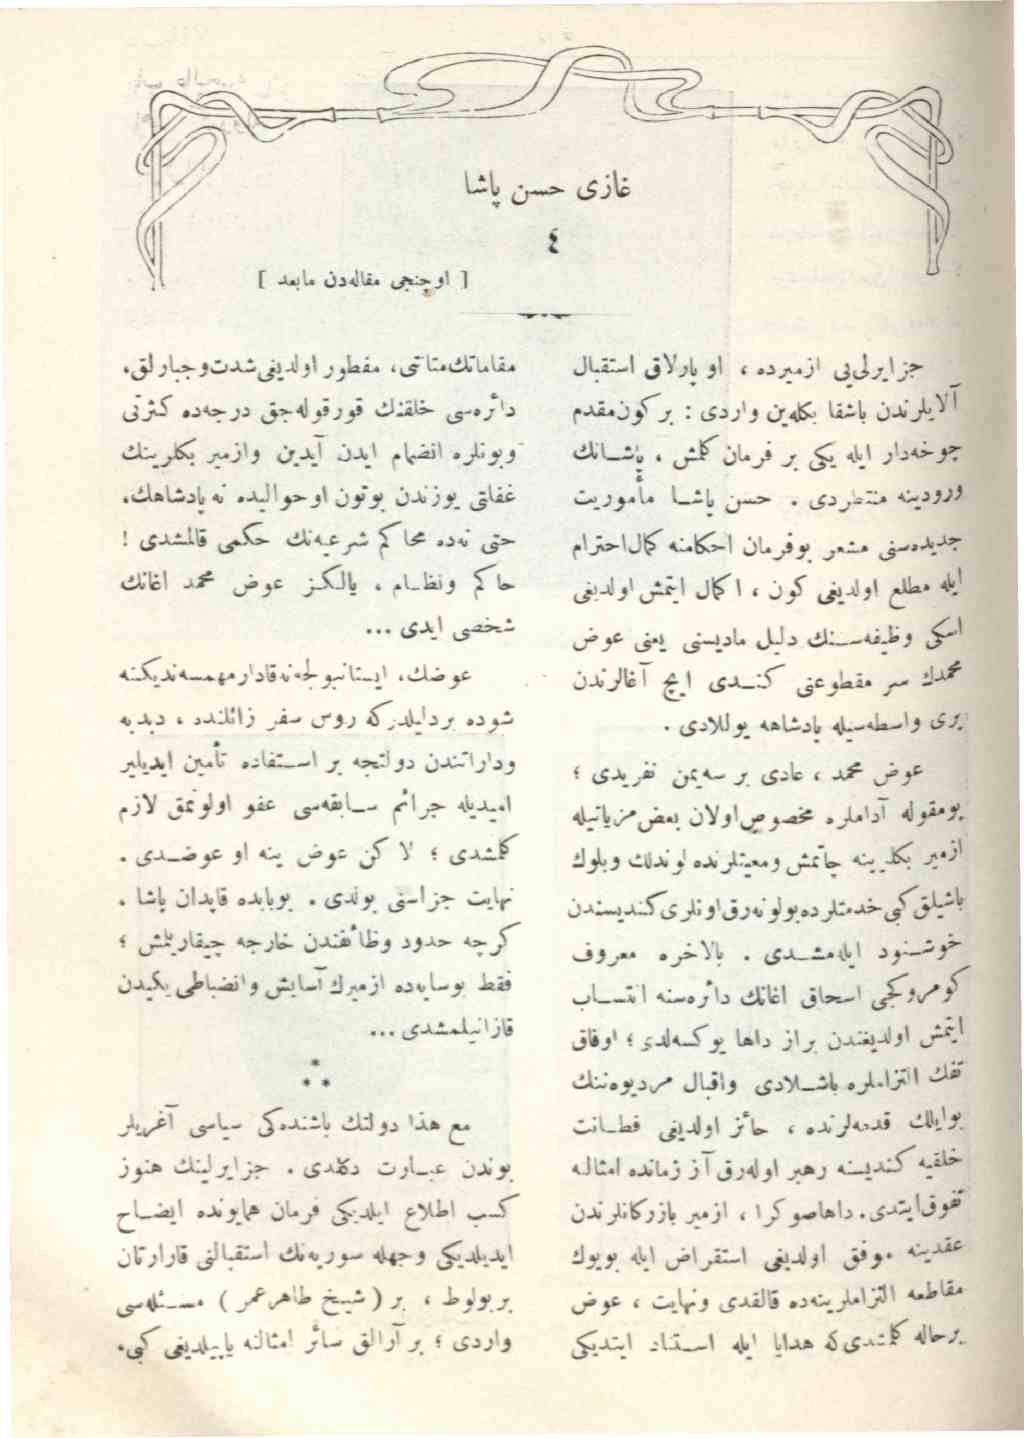 غازی حسن پاشا
٤
[ اوچنجی مقاله‌دن مابعد ]
جزایرلی‌یی ازمیرده ، او پارلاق استقبال
آلایلرندن باشقا بکله‌ین واردی : بر کون مقدم
چوخه‌دار ایله یکی بر فرمان کلمش ، پاشانك
ورودینه منتظردی . حسن پاشا مأموریت
جدیده‌سنی مشعر بو فرمان احکامنه کمال احترام
ایله مطلع اولدیغی کون ، اکمال ایتمش اولدیغی
اسکی وظیفه‌سنك دلیل مادیسنی یعنی عوض
محمدك سر مقطوعنی کندی ایچ آغالرندن
بری واسطه‌سیله پادشاهه یوللادی .
عوض محمد ، عادی بر سه‌یمن نفریدی ؛
بومقوله آداملره مخصوص اولان بعض مزیاتیله
ازمیر بکلرینه چاتمش ومعیتلرنده لوندلك وبلوك
باشیلق کبی خدمتلرده بولونه‌رق اونلری کندیسندن
خوشنود ایله‌مشدی . بالاخره معروف
کومروکجی اسحاق اغانك دائره‌سنه انتساب
ایتمش اولدیغندن براز داها یوکسه‌لدی ؛ اوفاق
تفك التزاملره باشلادی واقبال مردیوه‌ننك
بوایلك قدمه‌لرنده ، حائز اولدیغی فطانت
خلقیه کندیسنه رهبر اوله‌رق آز زمانده امثاله
تفوق ایتدی. داها صوکرا ، ازمیر بازرکانلرندن
عقدینه موفق اولدیغی استقراض ایله بویوك
مقاطعه التزاملرینه‌ده قالقدی ونهایت ، عوض
برحاله کلمشدی‌که هدایا ایله استناد ایتدیکی
مقاماتك متانتی، مفطور اولدیغی شدت وجبارلق،
دائره‌سی خلقنك قورقوله‌جق درجه‌ده کثرتی
وبونلره انضمام ایدن آیدین وازمیر بکلرینك
غفلتی یوزندن بوتون اوحوالیده نه پادشاهك،
حتی نه‌ده محاکم شرعیه‌نك حکمی قالمشدی !
حاکم ونظام ، یالکز عوض محمد اغانك
شخصی ایدی ...
عوضك، ایستانبولجه نه‌قادار مهمسه‌ندیکنه
شوده بردلیلدرکه روس سفر زائلنده ، دبدبه
وداراتندن دولتجه بر استفاده تأمین ایدیلیر
امیدیله جرائم سابقه‌سی عفو اولونمق لازم
کلمشدی ؛ لا کن عوض ینه او عوضدی .
نهایت جزاسنی بولدی . بوبابده قاپدان پاشا ،
کرچه حدود وظائفندن خارجه چیقارلمش ؛
فقط بوسایه‌ده ازمیرك آسایش وانضباطی یکیدن
قازانیلمشدی ...
*
* *
مع هذا دولتك باشنده‌کی سیاسی آغریلر
بوندن عبارت دکلدی . جزایرلینك هنوز
کسب اطلاع ایلدیکی فرمان همایونده ایضاح
ایدیلدیکی وجهله سوریه‌نك استقبالنی قارارتان
بربولوط ، بر ( شیخ طاهرعمر ) مسئله‌سی
واردی ؛ بر آرالق سائر امثالنه یاپیلدیغی کبی.